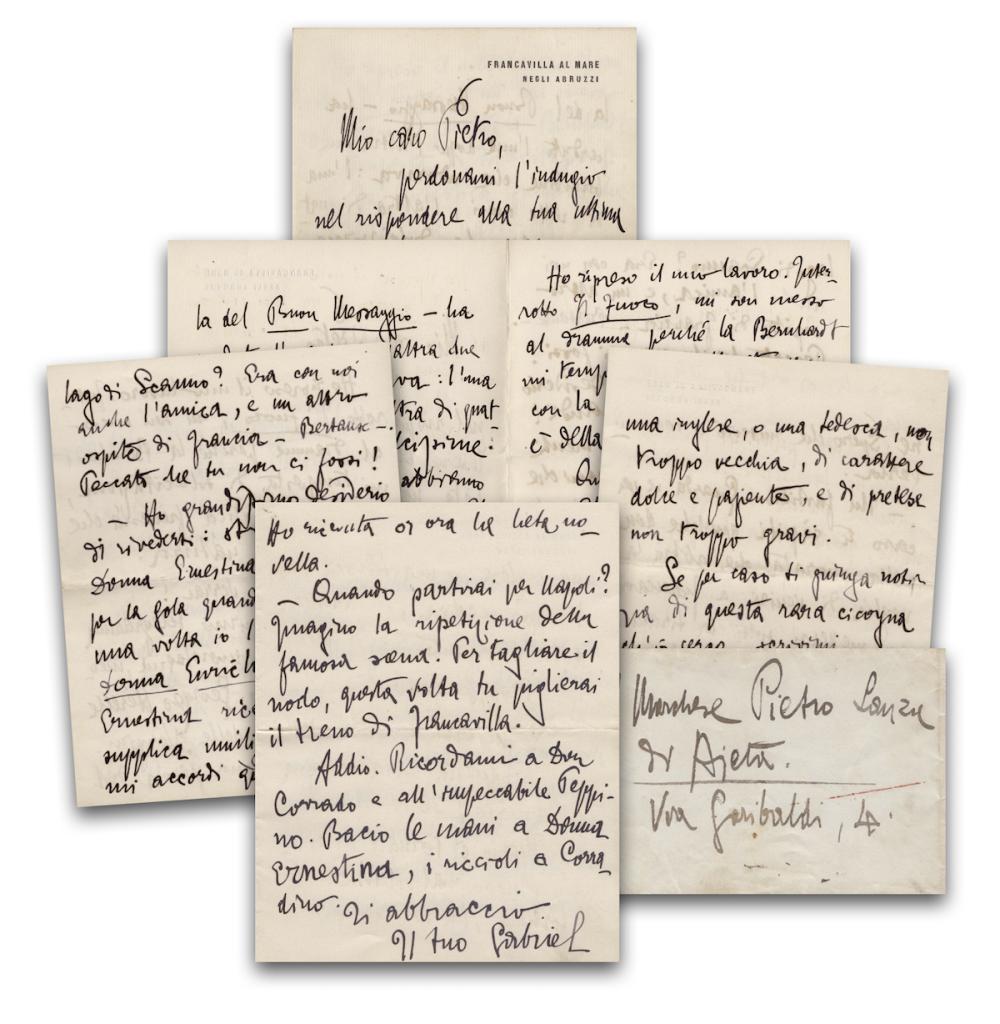 FRANCAVILLA AL MARE
NEGLI ABRUZZI
6
Mio caro Pietro,
perdonami l'indugio
nel rispondere alla tua ultima
la del Buon Messaggio – ha
altra due
va: l'una
tra di quat
cissime.
abbiamo
Ho ripreso il mio lavoro. Inter-
rotto Il Fuoco, mi son messo
al dramma perché la Bernhardt
mi temp
con la
è della
Qu
lago di Scanno? Era con noi
anche l'amica, e un altro
ospite di Grancia – Bertaux –.
Peccato che tu non ci fossi!
– Ho grandissimo desiderio
di rivederti:
Donna Ernestina
per la gola quand
una volta io
Donna Enrich
Ernestina rice
supplica umil
mi accordi
una inglese, o una tedesca, non
troppo vecchia, di carattere
dolce e paziente, e di pretese
non troppo gravi.
Se per caso ti giunga noti-
zia di questa rara cicogna
ch'io cerco, scrivimi
Ho ricevuta or ora la lieta no-
vella.
– Quando partirai per Napoli?
Imagino la ripetizione della
famosa scena! Per tagliare il
nodo, questa volta tu piglierai
il treno di Francavilla.
Addio. Ricordami a Don
Corrado e all'impeccabile Peppi-
no. Bacio le mani a Donna
Ernestina, i riccioli a Corra-
dino. Ti abbraccio.
Il tuo Gabriel
Marchese Pietro Lanza
di Ajeta.
Via Garibaldi, 4.